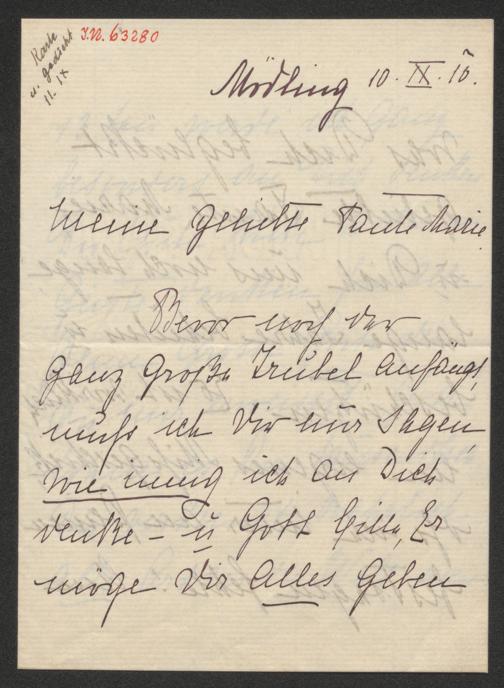 Karte
u. gedacht
11. IX
I.N. 63280
Mödling 10. IX. 10.
Meine geliebte Tante Marie
Bevor noch der
ganz große Trubel anfängt,
muß ich Dir nur sagen,
wie innig ich an Dich
denke – u Gott bitte, Er
möge Dir Alles geben